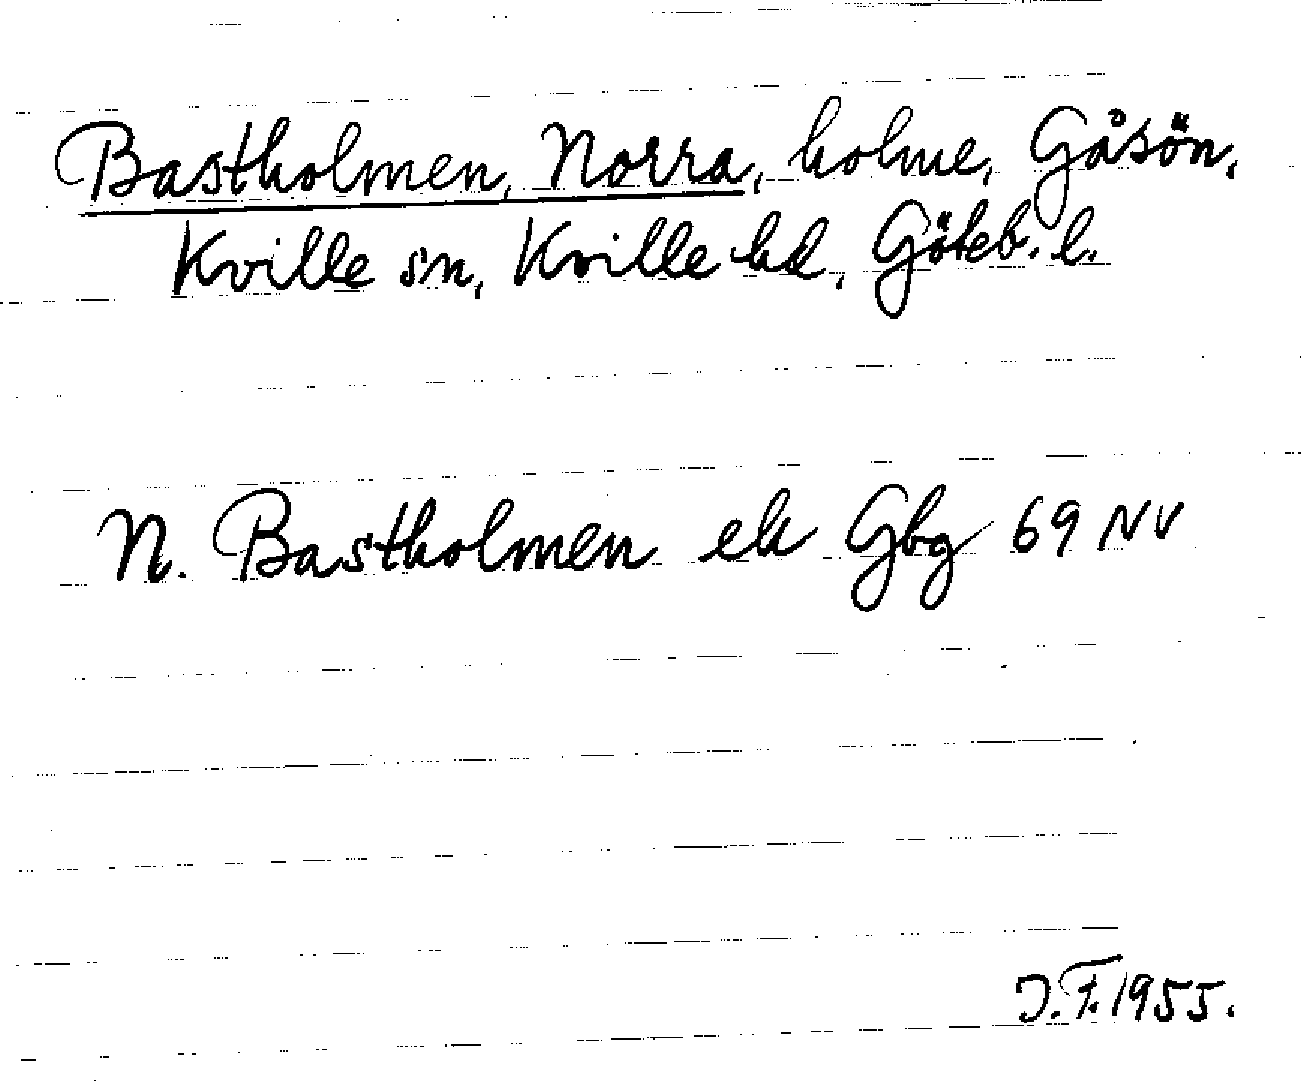 Bastholmen, Norra, holme, Gåsön,
Kville sn, Kville hd, Göteb. l.
N. Bastholmen ek Gbg 69 NV
J.F. 1955.